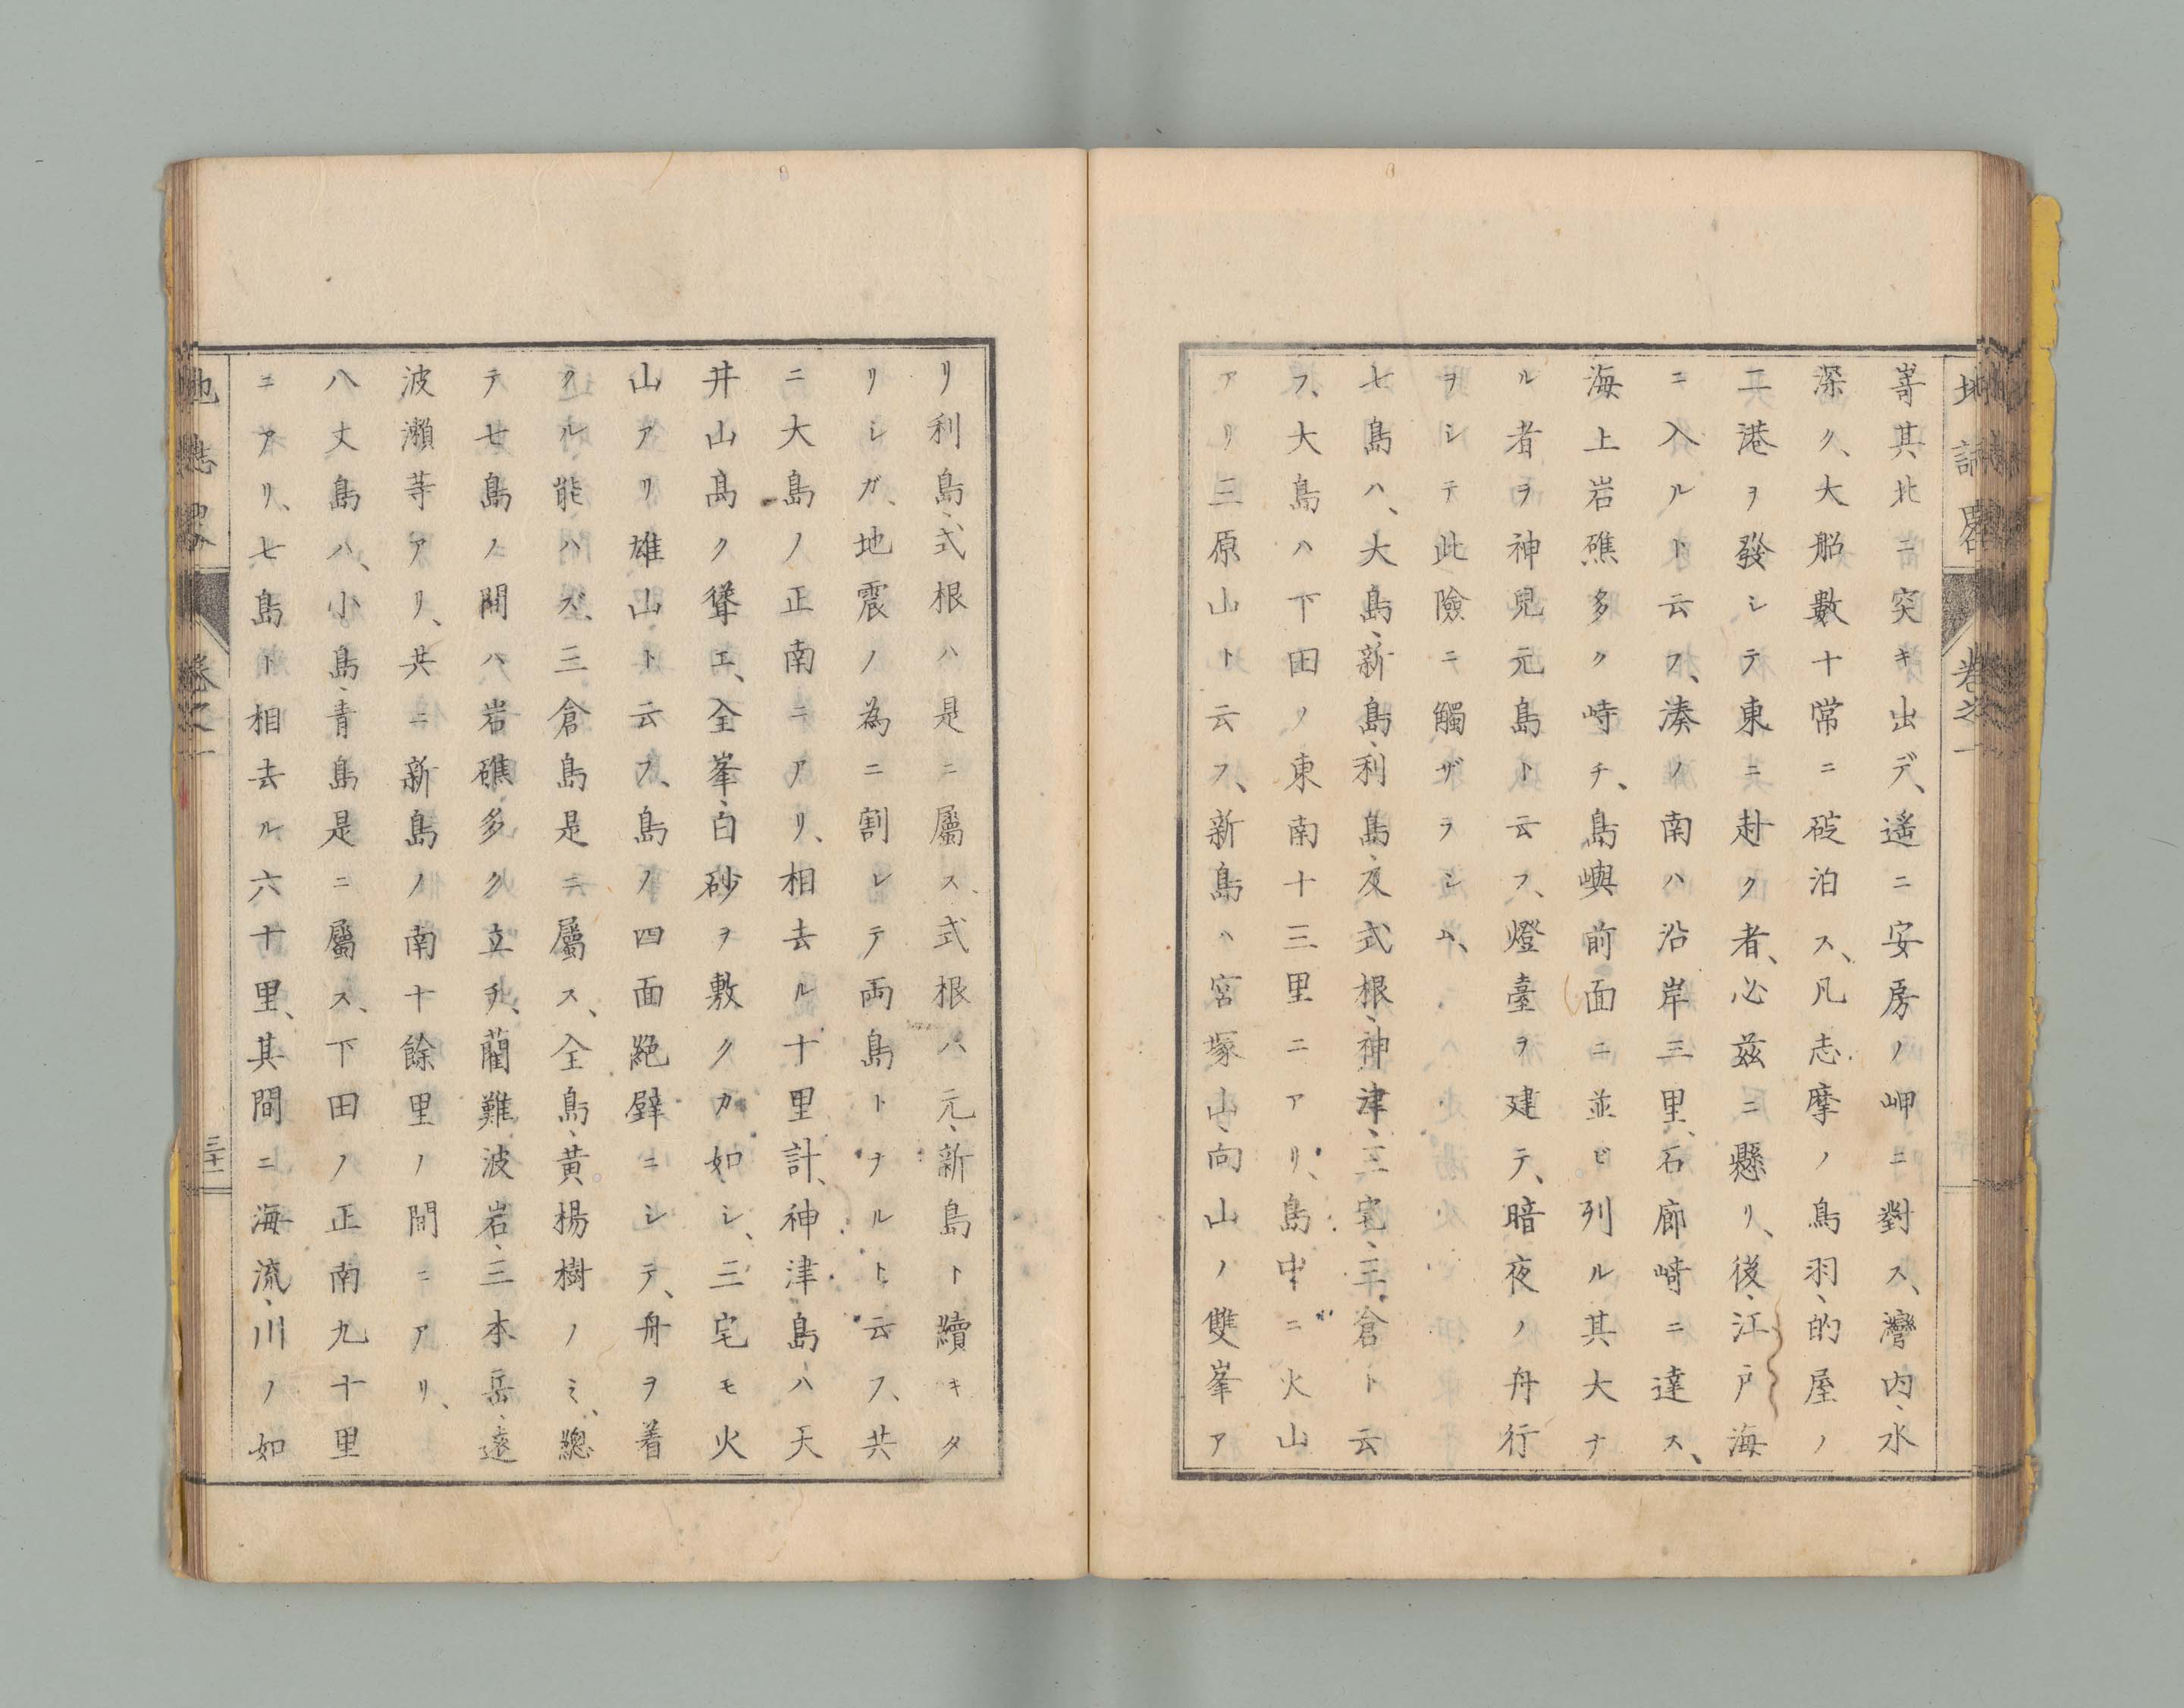 地誌畧 卷之一
嵜其北ニ突キ出デ、遙ニ安房ノ岬ニ對ス、灣内、水
深ク、大船數十常ニ碇泊ス、凡志摩ノ鳥羽、的屋ノ
二港ヲ發シテ東ニ赴ク者、必茲ニ懸リ、後、江戸海
ニ入ルト云フ、湊ノ南ハ沿岸三里、石廊﨑ニ達ス、
海上岩礁多ク峙チ、島嶼前面ニ並ビ列ル其大ナ
ル者ヲ神兒元島ト云フ、燈臺ヲ建テ、暗夜ノ舟行
ヲシテ此險ニ觸ザラシム、
七島ハ、大島、新島、利島、及式根、神津、三宅、三倉ト云
フ、大島ハ下田ノ東南十三里ニアリ、島中ニ火山
アリ三原山ト云フ、新島ハ宮塚山、向山ノ雙峯ア
リ利島、式根ハ是ニ屬ス、式根ハ元、新島ト續キタ
リシガ、地震ノ為ニ割レテ両島トナルト云フ、共
ニ大島ノ正南ニアリ、相去ル十里計、神津島ハ天
井山高ク聳エ、全峯、白砂ヲ敷クガ如シ、三宅モ火
山アリ雄山ト云フ、島ノ四面絶壁ニシテ、舟ヲ着
クル能ハズ、三倉島是ニ屬ス、全島、黄楊樹ノミ、總
テ七島ノ間ハ岩礁多ク立チ、藺難波岩、三本岳、遠
波瀬等アリ、共ニ新島ノ南十餘里ノ間ニアリ、
八丈島ハ、小島、青島是ニ屬ス、下田ノ正南九十里
ニアリ、七島ト相去ル六十里、其間ニ海流、川ノ如
地誌畧 卷之一 三十一